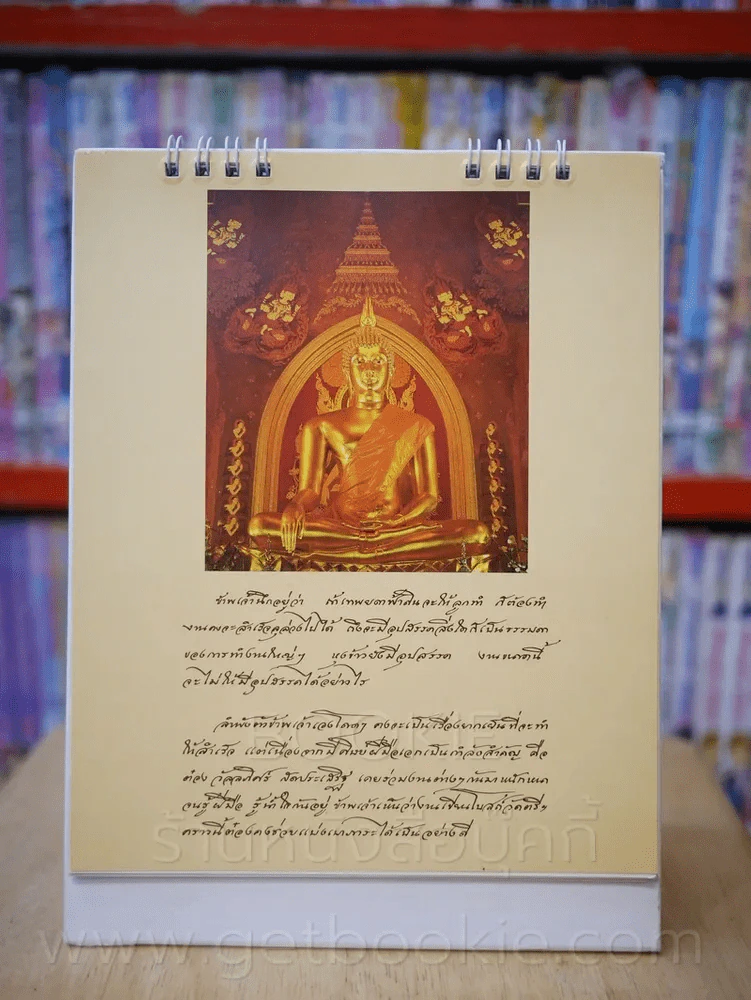 ข้าพเจ้านึกอยู่ว่า ถ้าเทพยดาฟ้าดินจะให้ลูกทำ ก็ต้องทำ
งานคงจะสำเร็จลุล่วงไปได้ ถึงจะมีอุปสรรคสิ่งใดก็เป็นธรรมดา
ของการทำงานใหญ่ๆ หุงข้าวยังมีอุปสรรค งานขนาดนี้
จะไม่ให้มีอุปสรรคได้อย่างไร
ลำพังตัวข้าพเจ้าเองโดดๆ คงจะเป็นเรื่องยากเย็นที่จะทำ
ให้สำเร็จ แต่เนื่องจากมีศิษย์ฝีมือเอกเป็นกำลังสำคัญ คือ
ต๋อง สัตประเสริฐ เคยร่วมงานต่างๆ กันมาหนักหนา
จนรู้ฝีมือ รู้น้ำใจกันอยู่ ข้าพเจ้าเห็นว่างานเขียนโบสถ์วัดตรีฯ
คราวนี้ต๋องคงช่วยแบ่งเบาภาระได้เป็นอย่างดี
BOOKIE
ร้านหนังสือบุ๊คกี้
www.getbookie.com